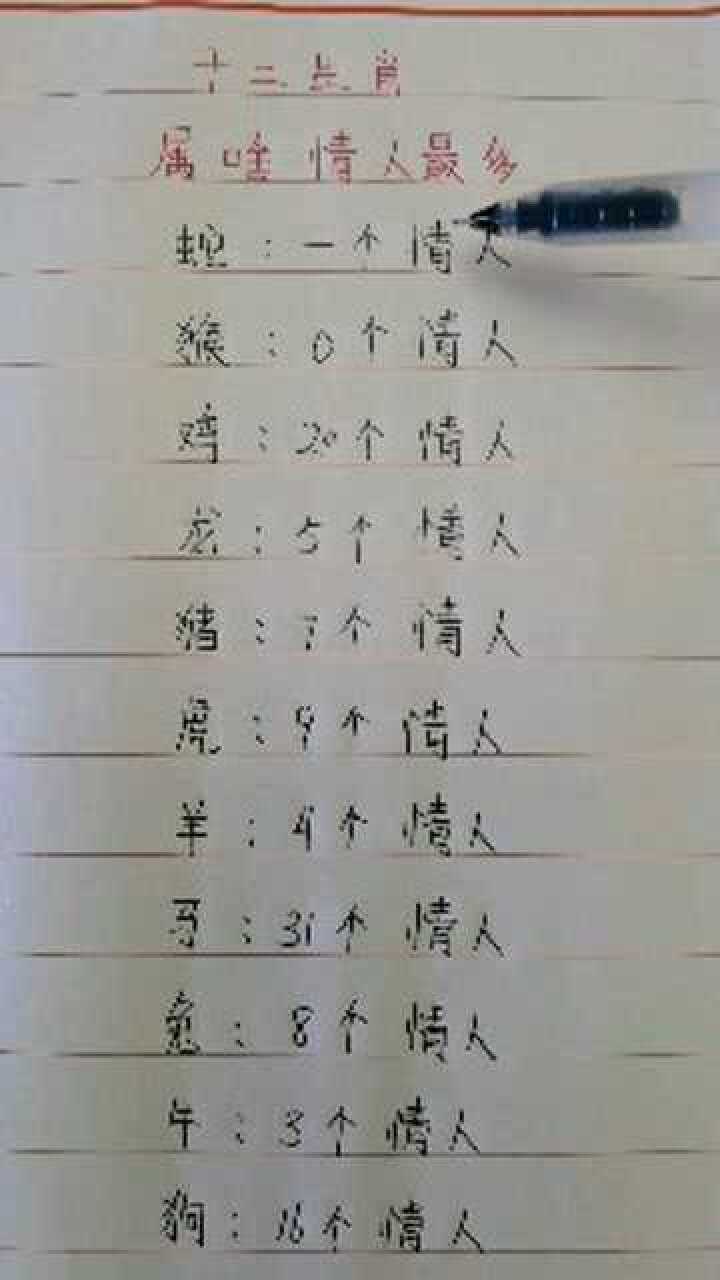 十二生肖
属啥 情人最多
蛇：一个情人
猴：0个情人
鸡：20个情人
龙：5个情人
猪：7个情人
虎：9个情人
羊：4个情人
马：31个情人
兔：8个情人
牛：3个情人
狗：16个情人